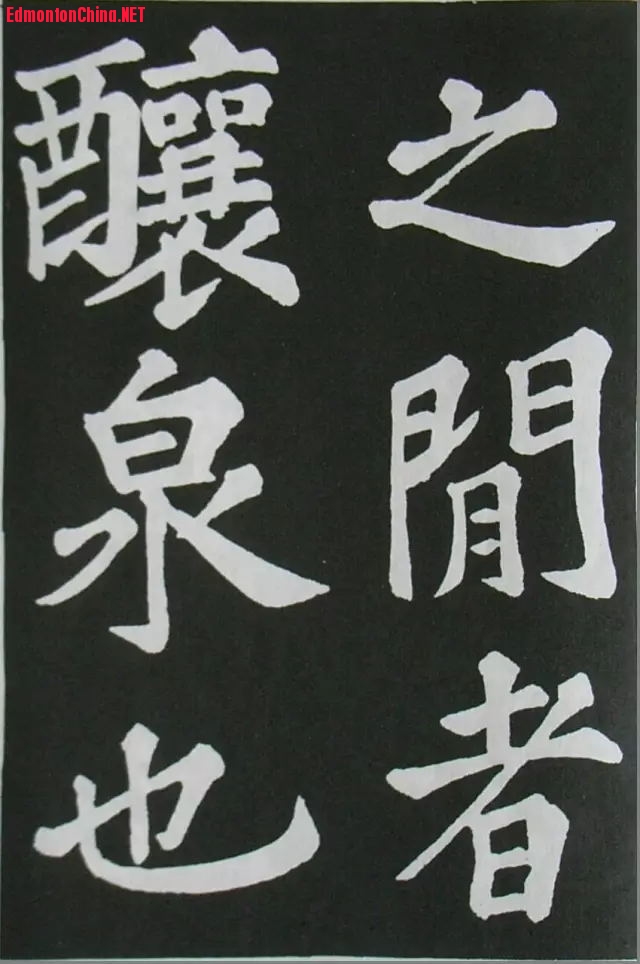 EdmontonChina.NET
之閒者
釀泉也